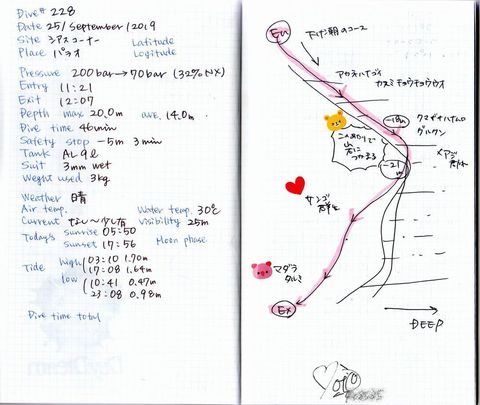 Dive# 228
Date 25/September/2019
Site シアスコーナー Latitude
Place パラオ Logitude
Pressure 200bar→70bar (32%NX)
Entry 11:21
Exit 12:07
Depth max 20.0m ave. 14.0m
Dive time 46min
Safety stop −5m 3min
Tank AL9ℓ
Suit 3mm wet
Weght used 3kg
Weather 晴
Air temp. Water temp. 30℃
Current なし〜少し有 Visibility 25m
Today's sunrise 05:50
Sunset 17:56 Moon phase
Tide high 03:10 1.70m
17:08 1.64m
low 10:41 0.47m
23:08 0.98m
Dive time total
En
下げ潮のコース
アカネハゼイ
カスミチョウチョウウオ
−18m
クマザサハナムロ
グルクン
この辺りで
岩に
つかまる
−21m
メアジ
群れ
サンゴ
群生
マダラ
タルミ
Ex
DEEP